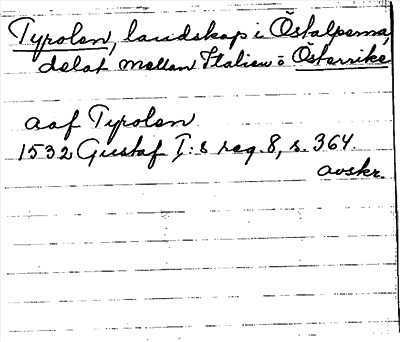 Tyrolen, landskap i Östalperna,
delat mellan Italien o Österrike
aaf Tyrolen
1532 Gustaf I:s reg. 8, s. 364.
avskr.